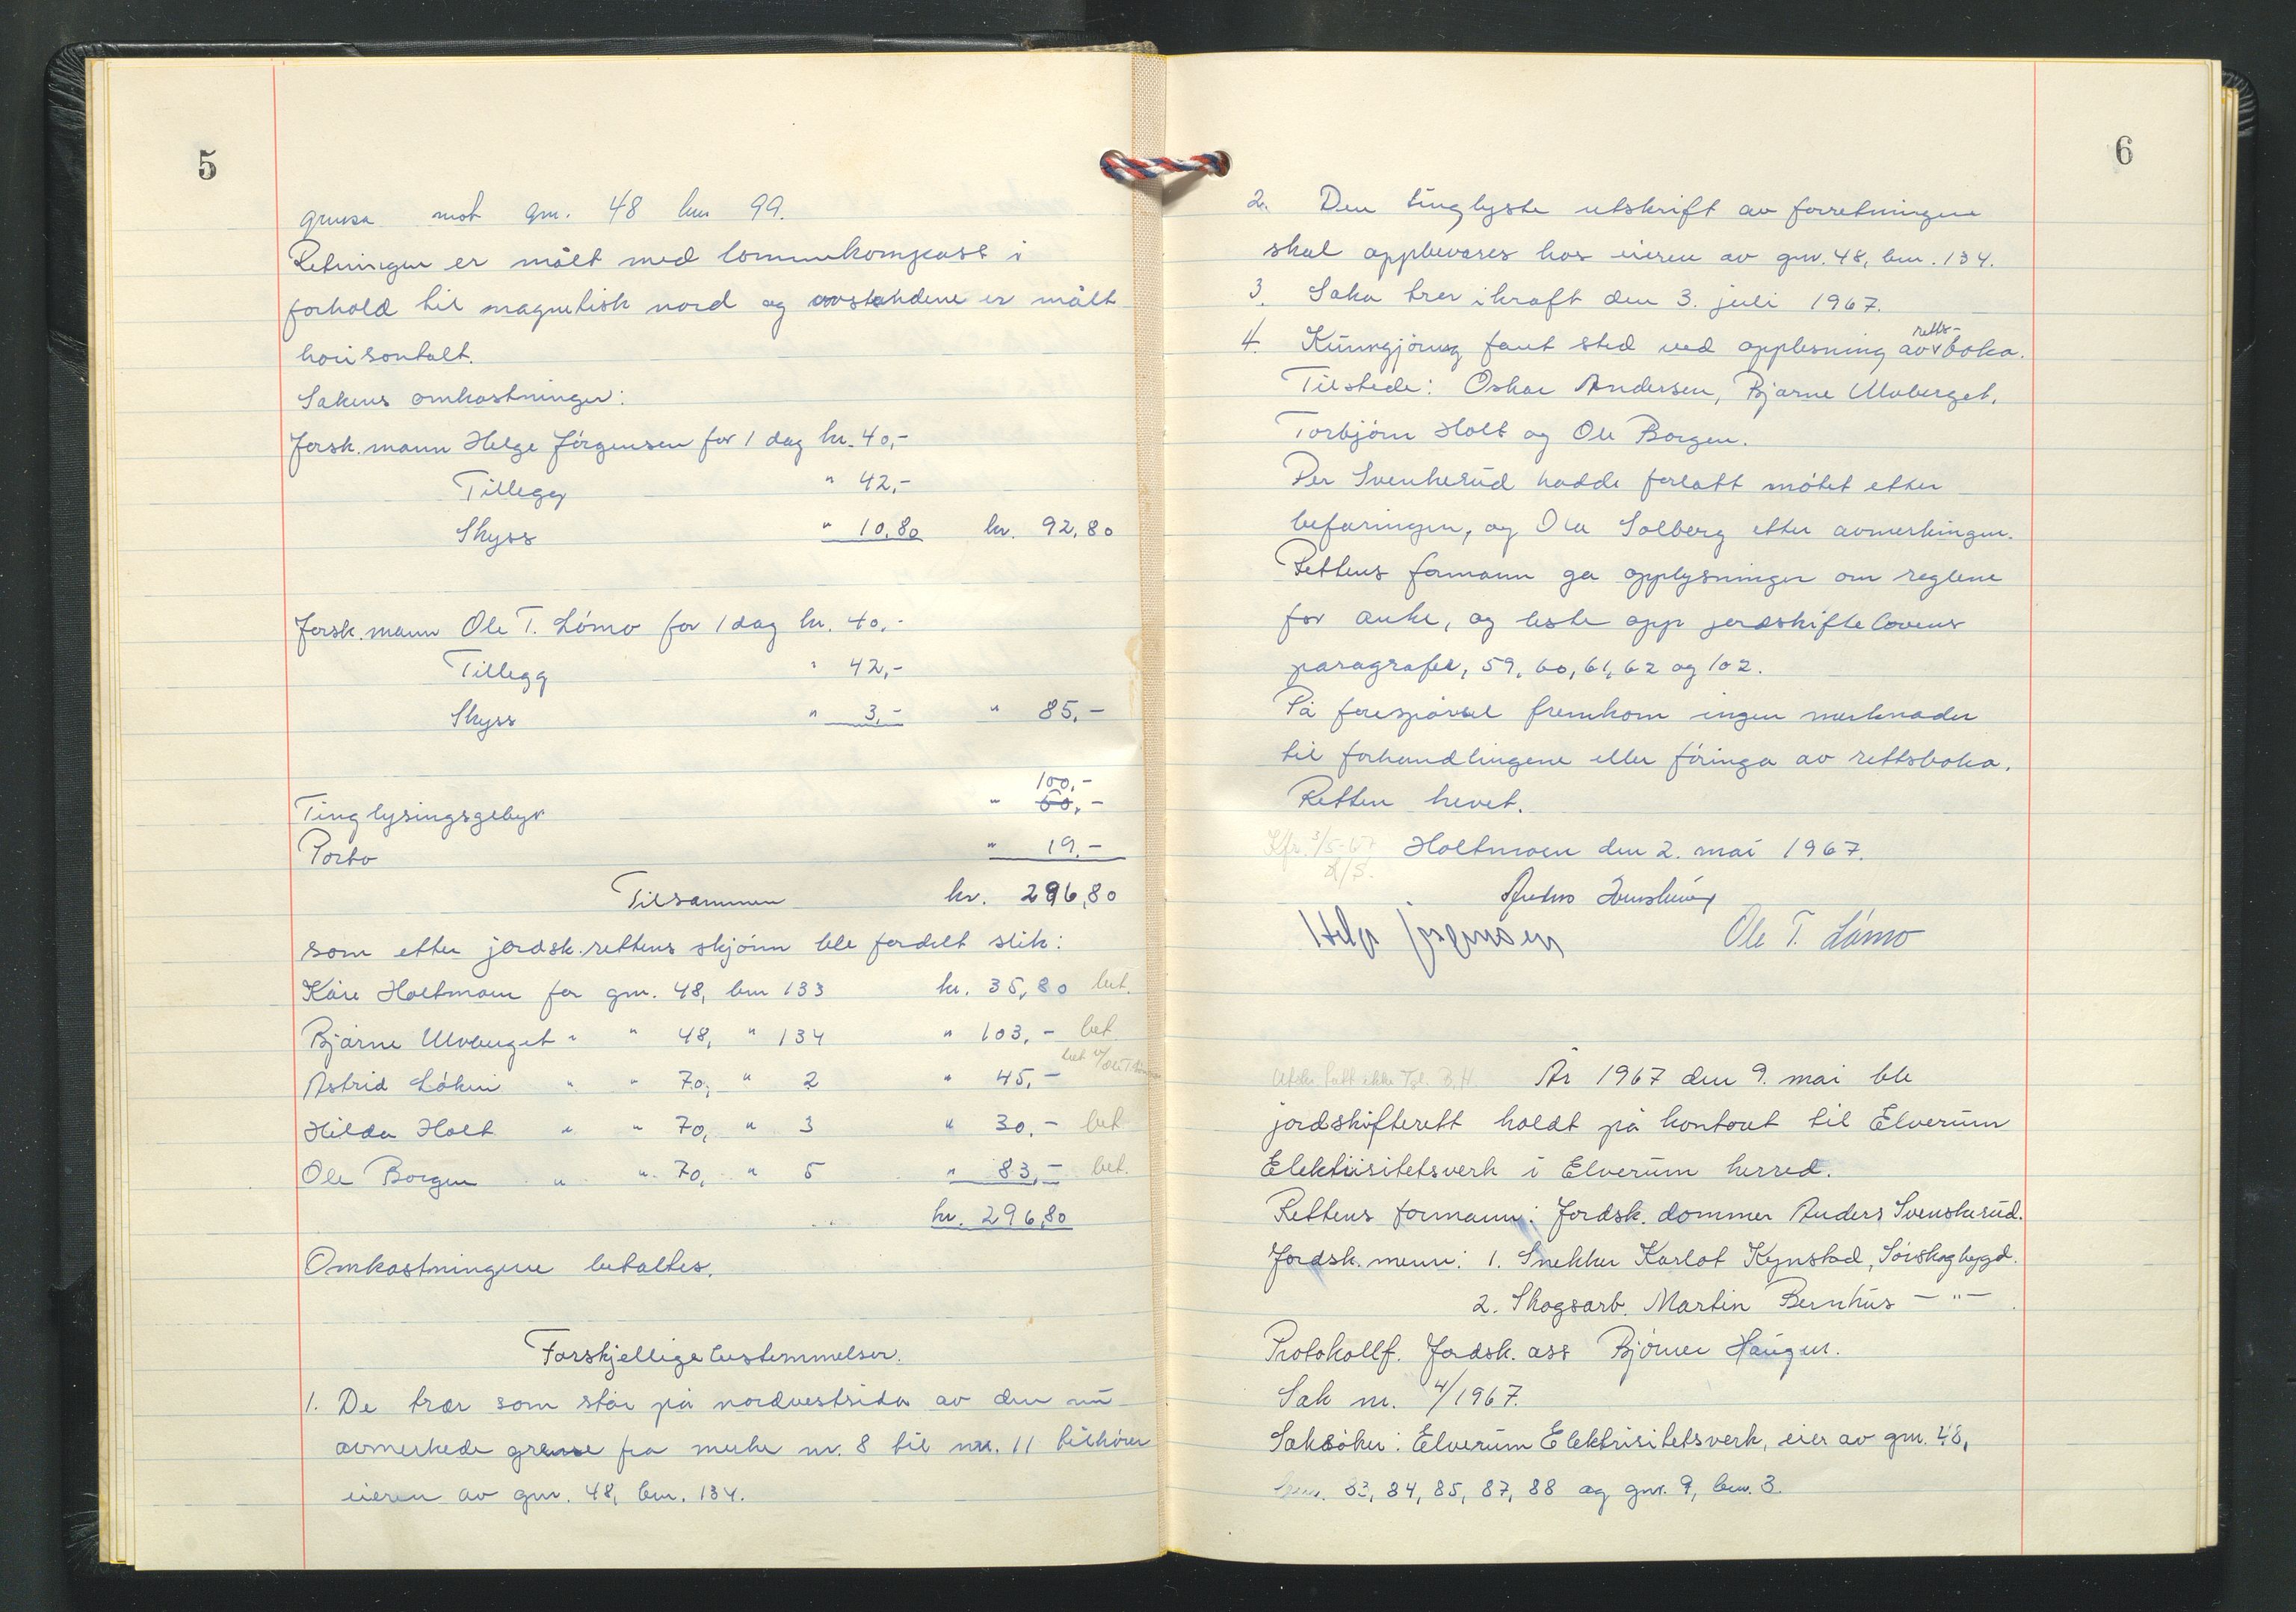 5
grensa mot gnr. 48 bnr 99.
Retningen er målt med lommekompass i
forhold til magnetisk nord og avstandene er målt
horisontalt.
Sakens omkostninger:
Jorsk.mann Helge Jörgensen for 1 dag kr. 40,-
Tillegg " 42,-
Skyss " 10,80 kr. 92,80
Jorsk.mann Ole T. Lömo for 1 dag kr. 40,-
Tillegg " 42,-
Skyss " 3,- " 85,-
100,-
Tinglysingsgebyr " 60,-
Porto " 19,-
Tilsammen kr. 296,80
som etter jordsk.rettens skjönn ble fordelt slik:
Kåre Holtmoen for gnr. 48, bnr 133 kr. 35,80 bet.
Bjarne Ulvberget " " 48, " 134 " 103,- bet.
Astrid Löken " " 70, " 2 " 45,- bet
Hilda Holt " " 70, " 3 " 30,- bet
Ole Borgen " " 70, " 5 " 83,- bet.
kr. 296,80
Omkostningene betaltes.
Forskjellige bestemmelser.
1. De trær som står på nordvestsida av den nå
avmerkede grense fra merke nr. 8 til nr. 11 tilhörer
eieren av gnr. 48, bnr. 134.
6
2. Den tinglyste utskrift av forretningen
skal oppbevares hos eieren av gnr. 48, bnr. 134.
3. Saka trer i kraft den 3. juli 1967.
retts-
4. Kunngjöring fant sted ved opplesning av boka.
Tilstede: Oskar Andersen, Bjarne Ulvberget,
Torbjörn Holt og Ole Borgen.
Per Svenkerud hadde forlatt mötet etter
befaringen, og Ola Solberg etter avmerkingen.
Rettens formann ga opplysninger om reglene
for anke, og leste opp jordskiftelovens
paragrafer, 59, 60, 61, 62 og 102.
På forespörsel fremkom ingen merknader
til forhandlingene eller föringa av rettsboka.
Retten hevet.
Kfr. 3/5-67 Holtmoen den 2. mai 1967.
Anders Svenskerud
Helge Jörgensen Ole T. Lömo
År 1967 den 9. mai ble
jordskifterett holdt på kontoret til Elverum
Elektrisitetsverk i Elverum herred.
Rettens formann: Jordsk. dommer Anders Svenskerud.
Jordsk.menn: 1. Snekker Karlot Kynstad, Sörskogbygd.
2. Skogsarb. Martin Bernhus - " -
Protokollf. Jordsk. ass Björner Haugen.
Sak nr. 4/1967.
Saksöker: Elverum Elektrisitetsverk, eier av gnr. 48,
bnr. 83, 84, 85, 87, 88 og gnr. 9, bnr. 3.